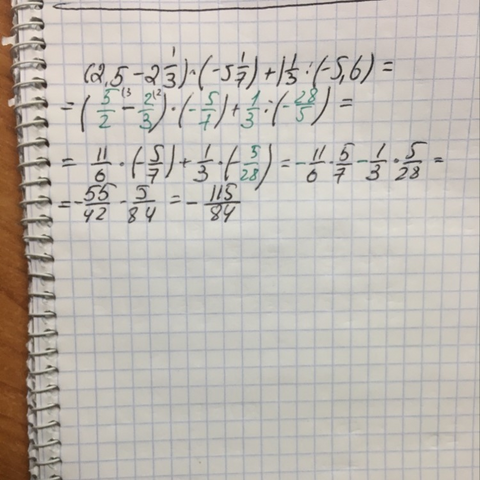 (2,5 - 2 1/3) · (-5 1/7) + 1 1/3 : (-5,6) =
= (5/2 (3 - 2/3 (2) · (-5/7) + 1/3 : (-28/5) =
= 11/6 · (-5/7) + 1/3 · (-5/28) = -11/6 · 5/7 - 1/3 · 5/28 =
= -55/42 - 5/84 = -115/84